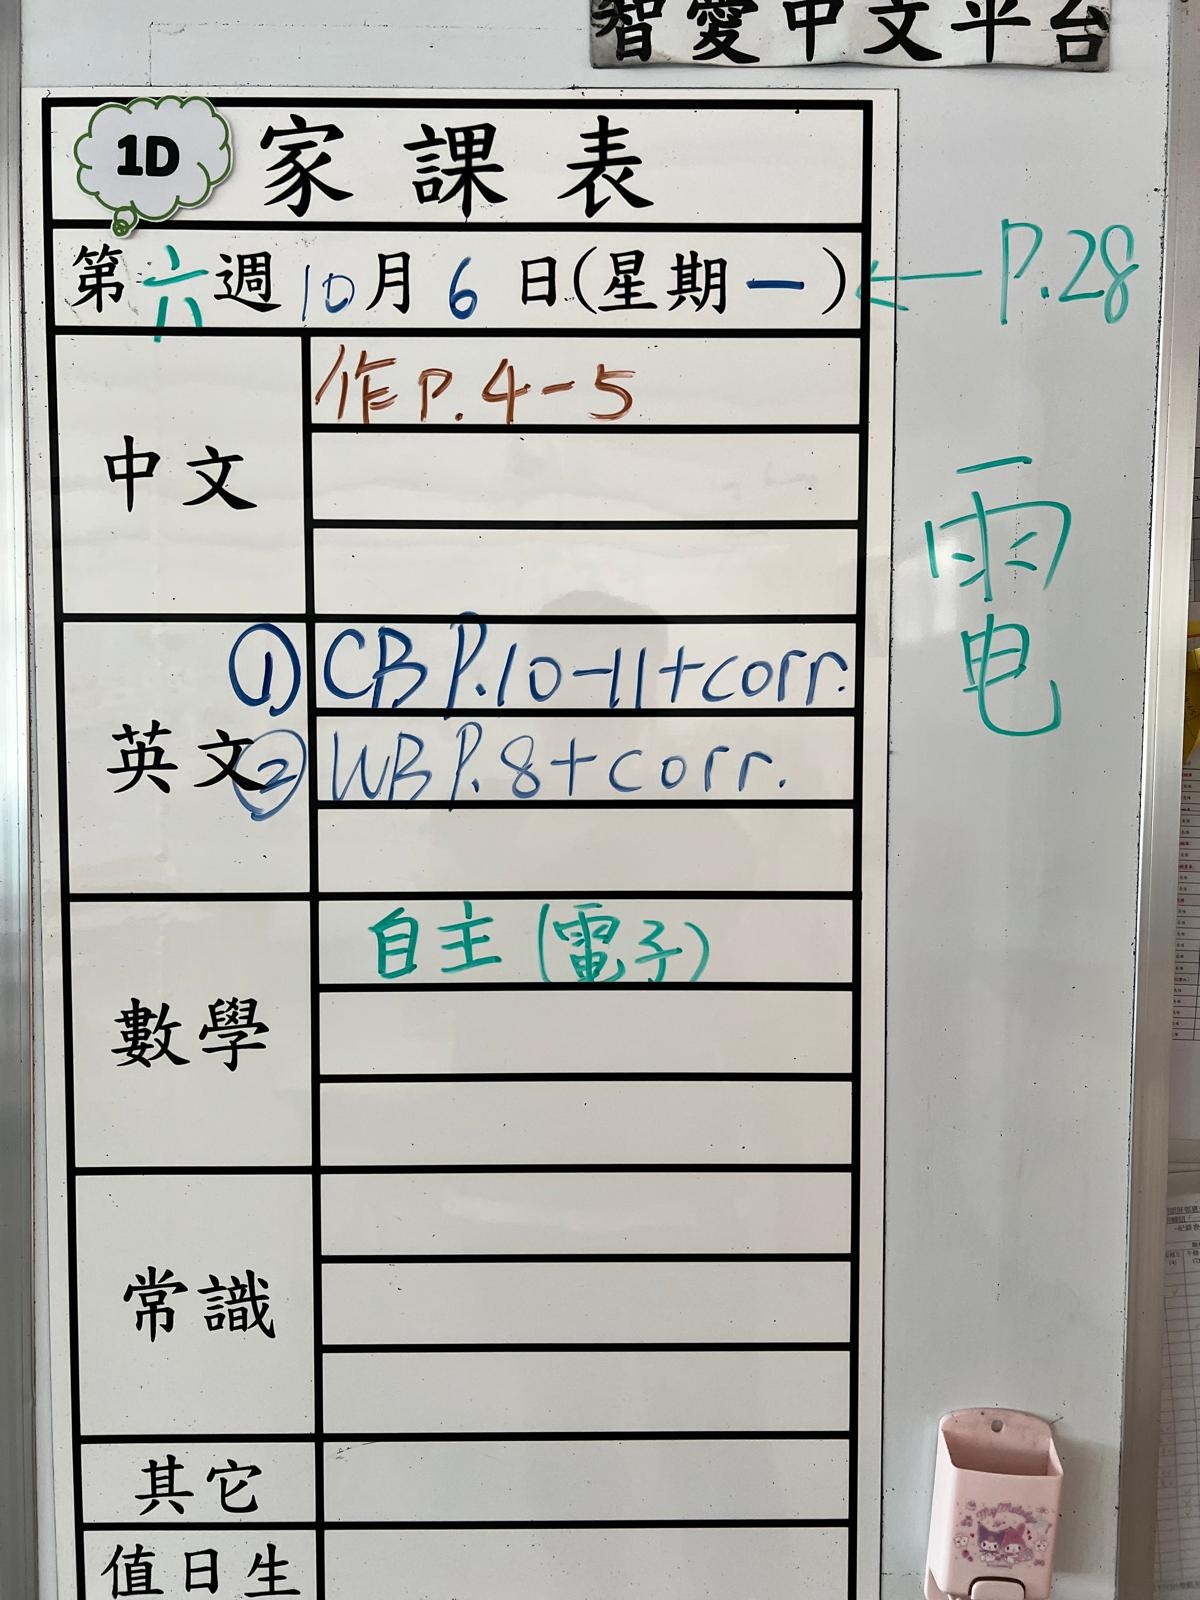 智愛中文平台
1D 家課表
第六週10月6日(星期一) ← P.28
中文
作P.4-5
電
英文
① CB P.10-11+corr.
② WB P.8+corr.
數學
自主(電子)
常識
其它
值日生